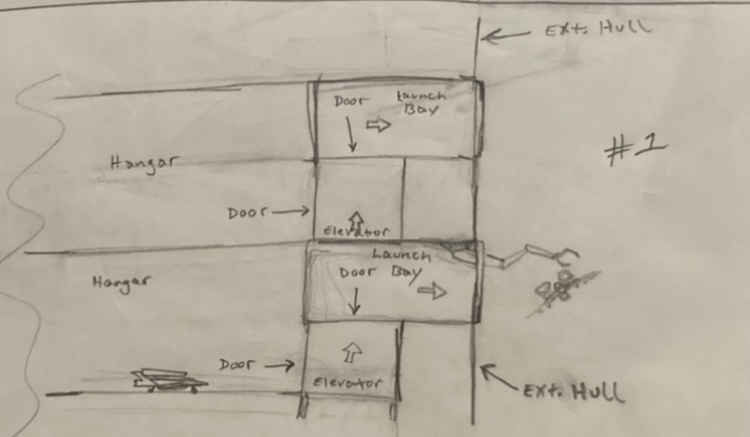 Ext. Hull
Door
Launch
Bay
#1
Hangar
Door
Elevator
Launch
Door Bay
Hangar
Door
Elevator
Ext. Hull